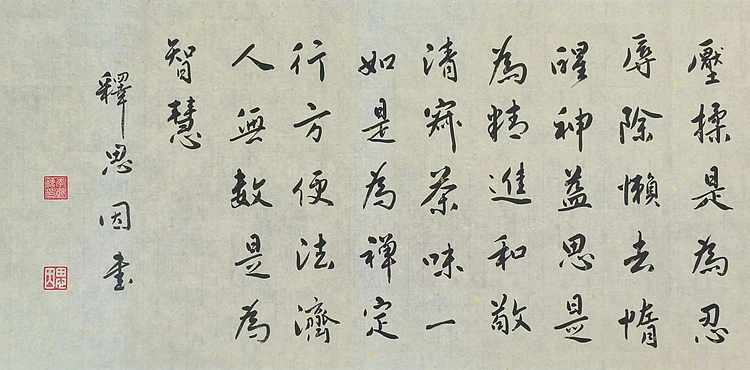 壓揉是為忍
辱除懶去惰
醒神益思是
為精進和敬
清寂茶味一
如是為禪定
行方便法濟
人無數是為
智慧
釋思因書